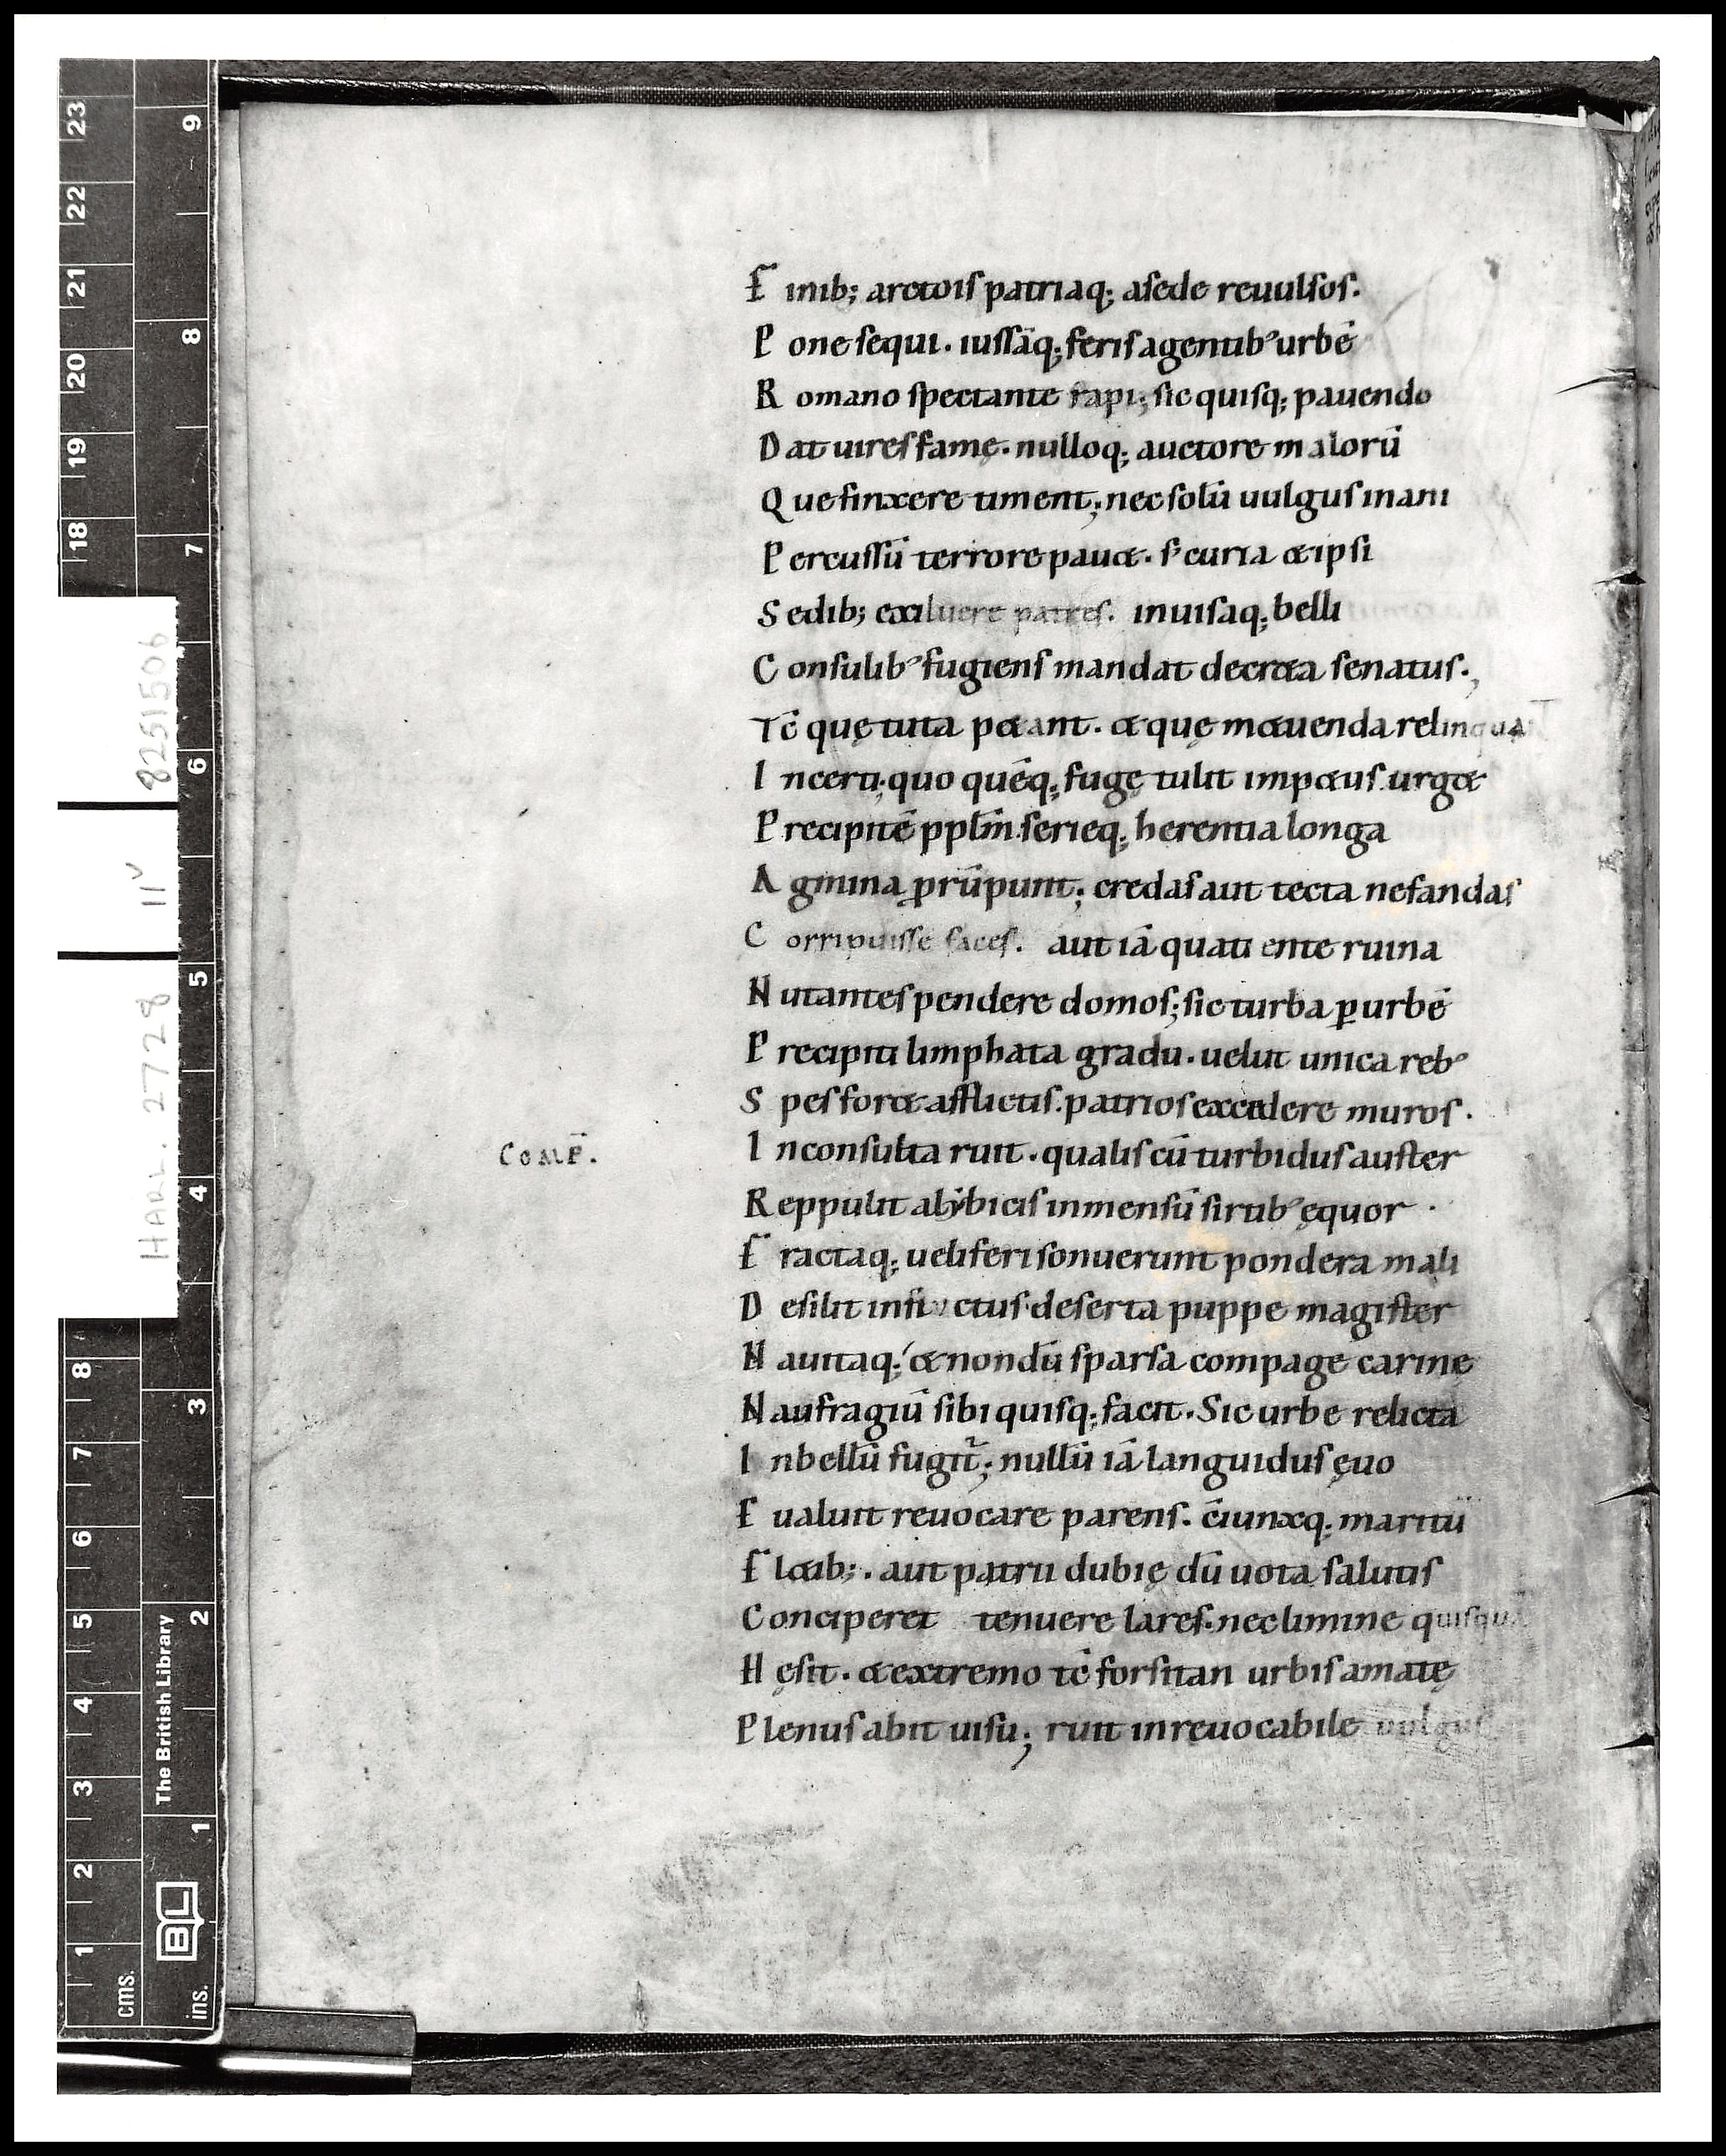 F inib; arctois patriaq; asede reuulsos.
P one sequi. iussāq; feris agentib⁹ urbē
R omano spectante rapi; sic quisq; pauendo
D at uires famę. nulloq; auctore malorū
Q ue finxere timent; nec solū uulgus inani
P ercussū terrore pauet. s; curia & ipsi
S edib; exiluere patres. inuisaq; belli
C onsulib⁹ fugiens mandat decreta senatus.,
Tc̄ quę tuta petant. & quę metuenda relinquant
I ncerti; quo quēq; fugę tulit impetus urget
P recipitē ppl̄m. serieq; herentia longa
A gmina prūpunt; credas aut tecta nefandas
C orripuisse faces. aut iā quatiente ruina
N utantes pendere domos; sic turba p urbē
P recipiti limphata gradu. uelut unica reb⁹
S pes foret afflictis. patrios excedere muros.
COMP̄. I nconsulta ruit. qualis cū turbidus auster
R eppulit alẏbicis inmensū sirtib⁹ ęquor .
F ractaq; ueliferi sonuerunt pondera mali
D esilit influctus deserta puppe magister
N auitaq; & nondū sparsa compage carinę
N aufragiū sibi quisq; facit. Sic urbe relicta
I nbellū fugit̄; nullū iā languidus ęuo
E ualuit reuocare parens. c̄iunxq; maritū
F letib;. aut patrii dubię dū uota salutis
C onciperet tenuere lares. nec limine quisquā
H ęsit. & extremo tc̄ forsitan urbis amatę
P lenus abit uisu; ruit inreuocabile uulgus
HARL. 2728 11v 8251506
The British Library
BL
cms.
ins.
23 22 21 20 19 18 8 7 6 5 4 3 2 1
9 8 7 6 5 4 3 2 1